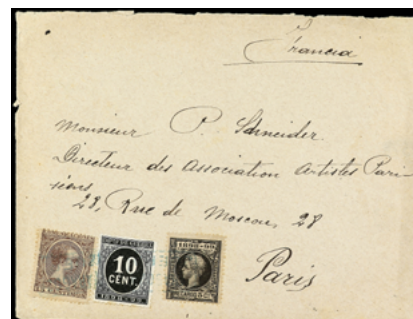 Francia
Monsieur P. Schneider
Directeur des Association Artistes Pari-
siens
28, Rue de Moscou, 28
Paris
10
CENT.
1898-99